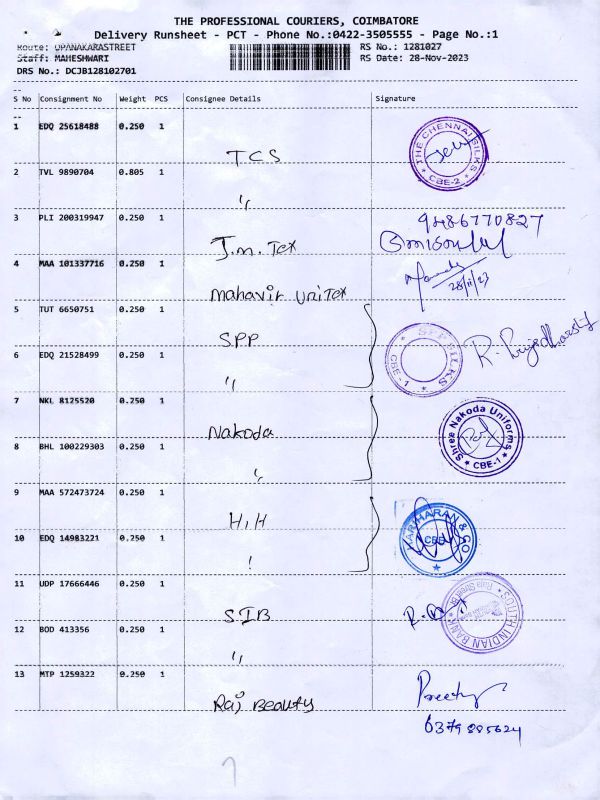 THE PROFESSIONAL COURIERS, COIMBATORE
Delivery Runsheet - PCT - Phone No.:0422-3505555 - Page No.:1
Route: UPANAKARASTREET
RS No.: 1281027
Staff: MAHESHWARI
RS Date: 28-Nov-2023
DRS No.: DCJB128102701
S No Consignment No Weight PCS Consignee Details Signature
1 EDQ 25618488 0.250 1
TCS
THE CHENNAI SILKS
CBE-2
2 TVL 9890704 0.805 1
"
3 PLI 200319947 0.250 1
J.m. Tex
9486770827
4 MAA 101337716 0.250 1
mahavir uniTex
28/11/23
5 TUT 6650751 0.250 1
SPP
SPP SILKS
CBE-1
6 EDQ 21528499 0.250 1
"
7 NKL 8125520 0.250 1
Nakoda
Shree Nakoda Uniforms
CBE-1
8 BHL 100229303 0.250 1
"
9 MAA 572473724 0.250 1
H,H
HARIHARAN & CO
CBE
10 EDQ 14983221 0.250 1
!
11 UDP 17666446 0.250 1
SIB
SOUTH INDIAN BANK
12 BOD 413356 0.250 1
"
13 MTP 1259322 0.250 1
Raj Beauty
Preethy
6379885624